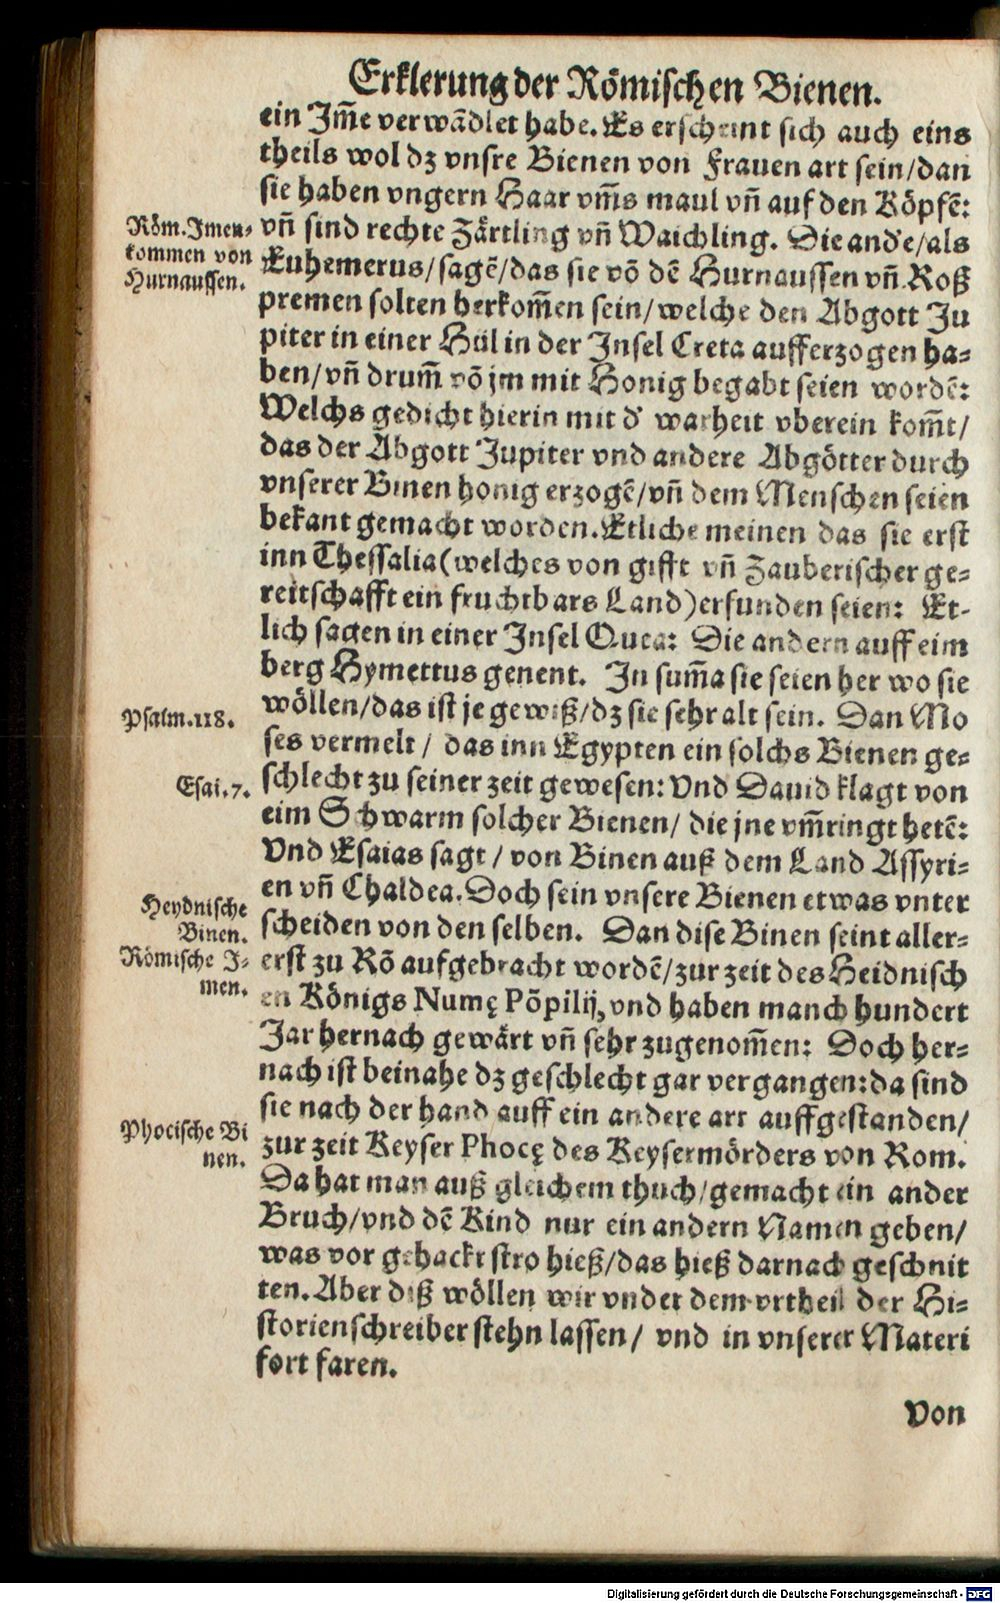 Erklerung der Römischen Bienen.
ein Im̃e verwãdlet habe. Es erscheint sich auch eins
theils wol dz vnsre Bienen von Frauen art sein/dan
sie haben vngern Haar vm̃s maul vñ auf den Köpfẽ:
Röm. Imen-
kommen von
Hurnaussen.
vñ sind rechte Zärtling vñ Waichling. Die and'e/als
Euhemerus/sagẽ/das sie võ dẽ Hurnaussen vñ Roß
premen solten herkom̃en sein/welche den Abgott Ju
piter in einer Hül in der Insel Creta aufferzogen ha-
ben/vñ drum̃ võ jm mit Honig begabt seien wordẽ:
Welchs gedicht hierin mit d' warheit vberein kom̃t/
das der Abgott Jupiter vnd andere Abgötter durch
vnserer Binen honig erzogẽ/vñ dem Menschen seien
bekant gemacht worden. Etliche meinen das sie erst
inn Thessalia (welches von gifft vñ Zauberischer ge-
reitschafft ein fruchtbars Land) erfunden seien: Et-
lich sagen in einer Insel Quea: Die andern auff eim
berg Hymettus genent. In sum̃a sie seien her wo sie
Psalm. 118.
wöllen/das ist je gewiß/dz sie sehr alt sein. Dan Mo
ses vermelt/ das inn Egypten ein solchs Bienen ge-
Esai. 7.
schlecht zu seiner zeit gewesen: Vnd Dauid klagt von
eim Schwarm solcher Bienen/ die jne vm̃ringt hetẽ:
Vnd Esaias sagt/ von Binen auß dem Land Assyri-
en vñ Chaldea. Doch sein vnsere Bienen etwas vnter
Heydnische
Binen.
Römische I-
men.
scheiden von den selben. Dan dise Binen seint aller-
erst zu Rõ aufgebracht wordẽ/zur zeit des Heidnisch
en Königs Numę Põpilij, vnd haben manch hundert
Jar hernach gewärt vñ sehr zugenom̃en: Doch her-
nach ist beinahe dz geschlecht gar vergangen: da sind
sie nach der hand auff ein andere art auffgestanden/
Phocische Bi
nen.
zur zeit Keyser Phocę des Keysermörders von Rom.
Da hat man auß gleichem thuch/gemacht ein ander
Bruch/vnd dẽ Kind nur ein andern Namen geben/
was vor gehackt stro hieß/das hieß darnach geschnit
ten. Aber diß wöllen wir vnder dem vrtheil der Hi-
storienschreiber stehn lassen/ vnd in vnserer Materi
fort faren.
Von
Digitalisierung gefördert durch die Deutsche Forschungsgemeinschaft - DFG